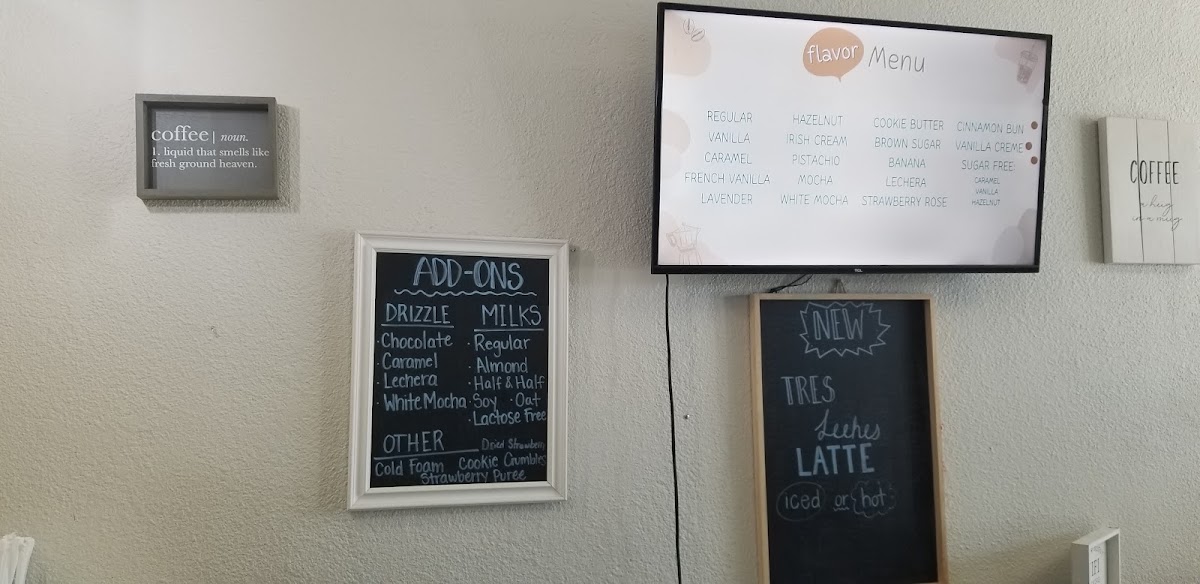 coffee| noun.
1. liquid that smells like
fresh ground heaven.
ADD-ONS
DRIZZLE
· Chocolate
· Caramel
· Lechera
· White Mocha
MILKS
· Regular
· Almond
· Half & Half
· Soy · Oat
· Lactose Free
OTHER
Dried Strawberry
Cold Foam Cookie Crumbles
Strawberry Puree
flavor Menu
REGULAR
VANILLA
CARAMEL
FRENCH VANILLA
LAVENDER
HAZELNUT
IRISH CREAM
PISTACHIO
MOCHA
WHITE MOCHA
COOKIE BUTTER
BROWN SUGAR
BANANA
LECHERA
STRAWBERRY ROSE
CINNAMON BUN
VANILLA CREME
SUGAR FREE:
CARAMEL
VANILLA
HAZELNUT
TCL
NEW
TRES
Leches
LATTE
iced or hot
COFFEE
a hug
in a mug